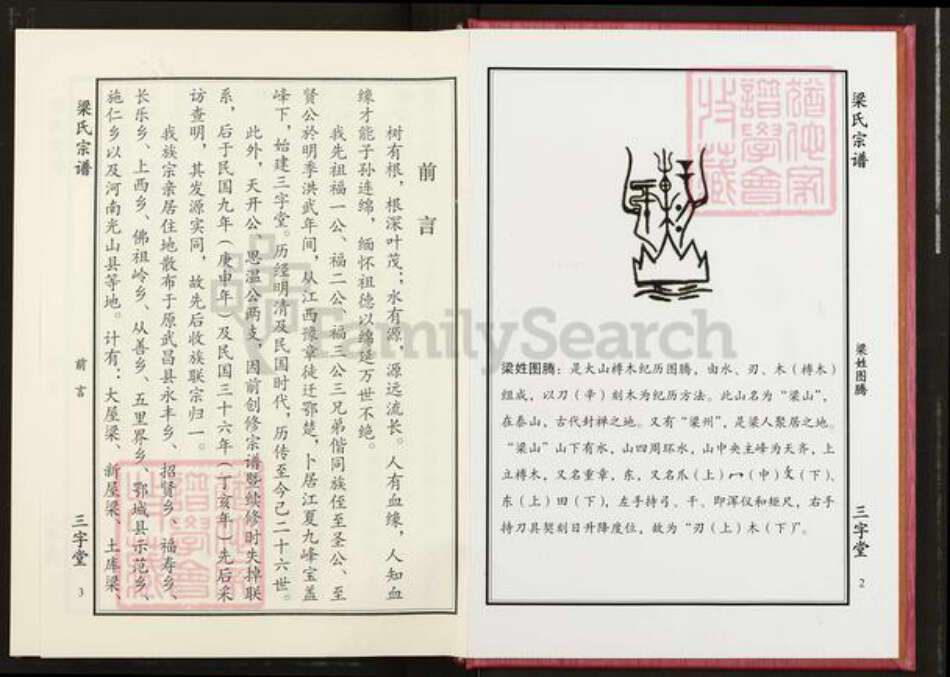 梁氏宗谱
梁姓图腾
三字堂
2
梁姓图腾：是大山榑木纪历图腾，由水、刃、木（榑木）
组成，以刀（辛）刻木为纪历方法。此山名为“梁山”，
在泰山，古代封禅之地。又有“梁州”，是梁人聚居之地。
“梁山”山下有水，山四周环水，山中央主峰为天齐，上
立榑木，又名重章，东，又名爪（上）冖（中）攵（下）、
东（上）田（下），左手持弓、干、即浑仪和矩尺，右手
持刀具契刻日升降度位，故为“刃（上）木（下）”。
前言
树有根，根深叶茂；水有源，源远流长。人有血缘，人知血
缘才能子孙连绵，缅怀祖德以绵延万世不绝。
我先祖福一公、福二公、福三公三兄弟偕同族侄至圣公、至
贤公於明季洪武年间，从江西豫章徒迁鄂楚，卜居江夏九峰宝盖
峰下，始建三字堂。历经明清及民国时代，历传至今已二十六世。
此外，天开公、思温公两支，因前创修宗谱暨续修时失掉联
系，后于民国九年（庚申年）及民国三十六年（丁亥年）先后采
访查明，其发源实同，故先后收族联宗归一。
我族宗亲居住地散布于原武昌县永丰乡、招贤乡、福寿乡、
长乐乡、上西乡、佛祖岭乡、从善乡、五里界乡、鄂城县示范乡、
施仁乡以及河南光山县等地。计有：大屋梁、新屋梁、土库梁、
梁氏宗谱
前言
三字堂
3
FamilySearch